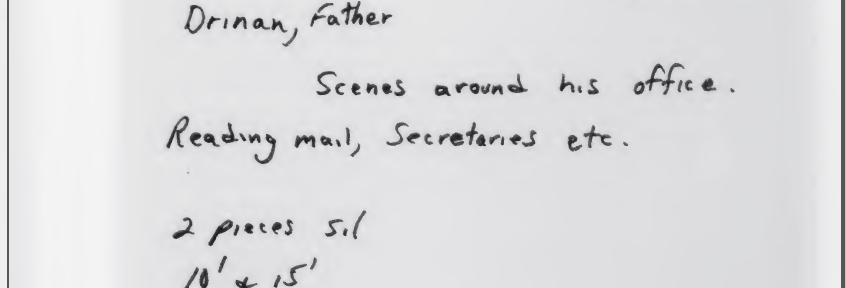 Drinan, Father
Scenes around his office.
Reading mail, Secretaries etc.
2 pieces sil
10' & 15'